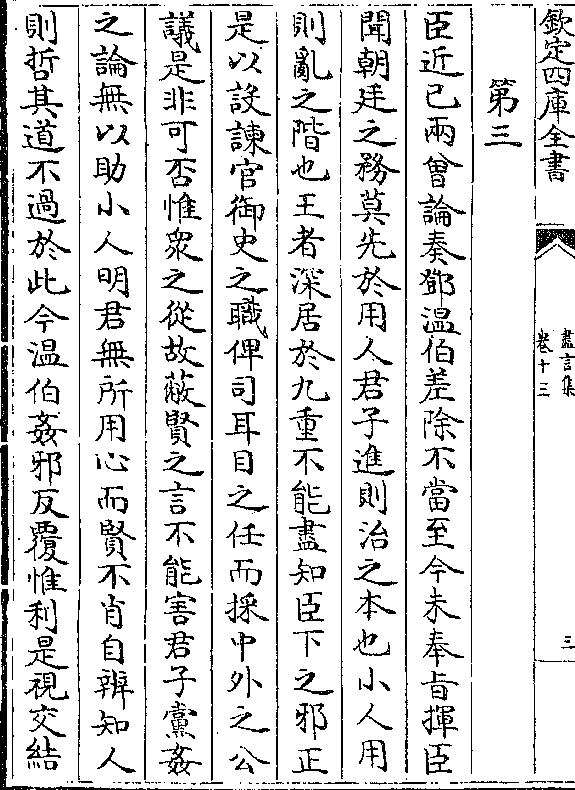 欽定四庫全書
盡言集
卷十三
三
第三
臣近已兩曾論奏鄧温伯差除不當至今未奉旨揮臣
聞朝廷之務莫先於用人君子進則治之本也小人用
則亂之階也王者深居於九重不能盡知臣下之邪正
是以設諫官御史之職俾司耳目之任而採中外之公
議是非可否惟衆之從故蔽賢之言不能害君子黨姦
之論無以助小人明君無所用心而賢不肖自辨知人
則哲其道不過於此今温伯姦邪反覆惟利是視交結